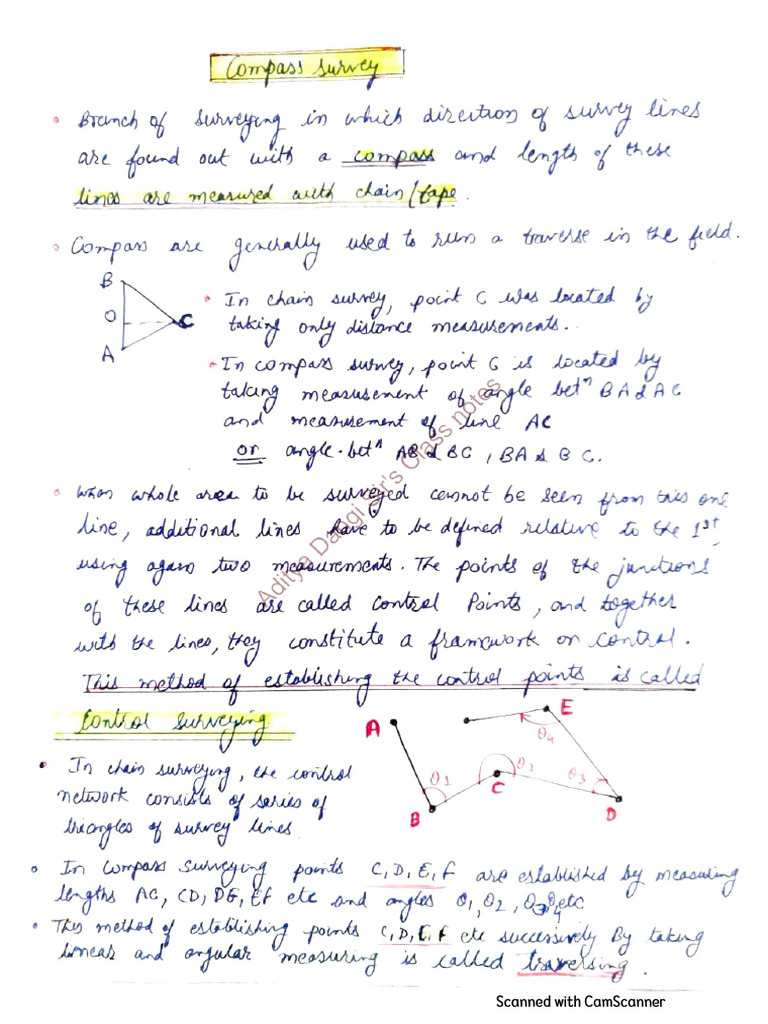 Compass Survey
• Branch of surveying in which direction of survey lines
are found out with a compass and length of these
lines are measured with chain/tape.
• Compass are generally used to run a traverse in the field.
B
O
C
A
• In chain survey, point C was located by
taking only distance measurements..
• In compass survey, point C is located by
taking measurement of angle betn BA & AC
and measurement of line AC
or angle betn AB & BC, BA & BC.
• When whole area to be surveyed cannot be seen from this one
line, additional lines have to be defined relative to the 1st,
using again two measurements. The points of the junctions
of these lines are called Control Points, and together
with the lines, they constitute a framework or control.
This method of establishing the control points is called
Control Surveying.
A
B
C
D
E
θ1
θ2
θ3
θ4
• In chain surveying, the control
network consists of series of
triangles of survey lines
• In compass surveying points C, D, E, F are established by measuring
lengths AC, CD, DE, EF etc and angles θ1, θ2, θ3, θ4 etc
• This method of establishing points C, D, E, F etc successively By taking
linear and angular measuring is called traversing.
Aditya Dangi Sir's Class notes
Scanned with CamScanner